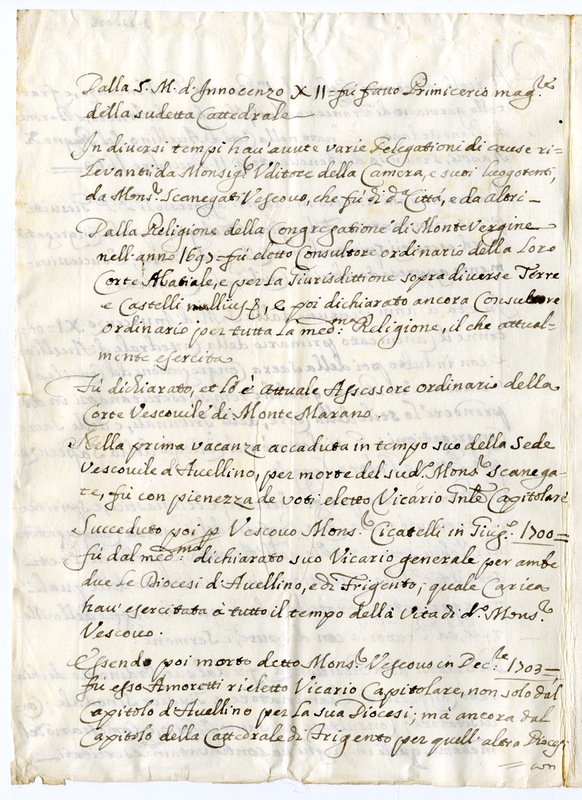 Dalla S. M. d'Innocenzo XII= fù fatto Primicerio mag.re
della sudetta Cattedrale
In diversi tempi hau' avute varie Delegationi di cause ri-
levanti da Monsig.r Uditore della Camera, e suoi luogotenti,
da Mons.r Scanegati Vescovo, che fù di d.a Città, e da altri-
Dalla Religione della Congregatione di Monte Vergine
nell'anno 1697= fù eletto Consultore ordinario della loro
Corte Abatiale, e per la Giurisdittione sopra diverse Terre
e Castelli nullius, e poi dichiarato ancora Consultore
ordinario per tutta la med.ma Religione, il che attual-
mente esercita
Fù dichiarato, et lo è attuale Assessore ordinario della
Corte Vescovile di Monte Marano.
Nella prima vacanza accaduta in tempo suo della Sede
Vescovile d'Avellino, per morte del sud.o Mons.r Scanega-
te, fù con pienezza de voti eletto Vicario Gnle Capitolare
Succeduto poi p Vescovo Mons.r Cicatelli in Giug.o 1700=
fù dal med.mo dichiarato suo Vicario generale per ambe
due le Diocesi d'Avellino, e di Frigento; quale Carica
hau' esercitata à tutto il tempo della Vita di d.o Mons.r
Vescovo.
Essendo poi morto detto Mons.r Vescovo in Dec.re 1703=
fù esso Amoretti rieletto Vicario Capitolare, non solo dal
Capitolo d'Avellino per la sua Diocesi; mà ancora dal
Capitolo della Cattedrale di Frigento per quell'altra Diocesi
= con